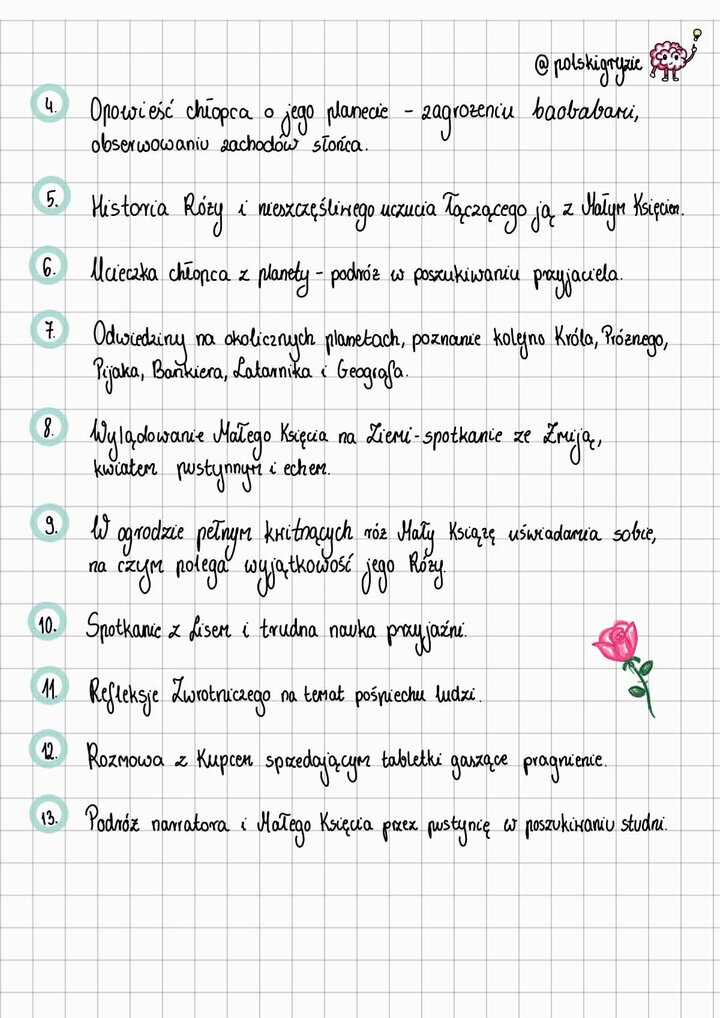 @polskigryzie
4. Opowieść chłopca o jego planecie - zagrożeniu baobabami,
obserwowaniu zachodów słońca.
5. Historia Róży i nieszczęśliwego uczucia łączącego ją z Małym Księciem.
6. Ucieczka chłopca z planety - podróż w poszukiwaniu przyjaciela.
7. Odwiedziny na okolicznych planetach, poznanie kolejno Króla, Próżnego,
Pijaka, Bankiera, Latarnika i Geografa.
8. Wylądowanie Małego Księcia na Ziemi - spotkanie ze Żmiją,
kwiatem pustynnym i echem.
9. W ogrodzie pełnym kwitnących róż Mały Książę uświadamia sobie,
na czym polega wyjątkowość jego Róży.
10. Spotkanie z Lisem i trudna nauka przyjaźni.
11. Refleksje Zwrotniczego na temat pośpiechu ludzi.
12. Rozmowa z Kupcem sprzedającym tabletki gaszące pragnienie.
13. Podróż narratora i Małego Księcia przez pustynię w poszukiwaniu studni.